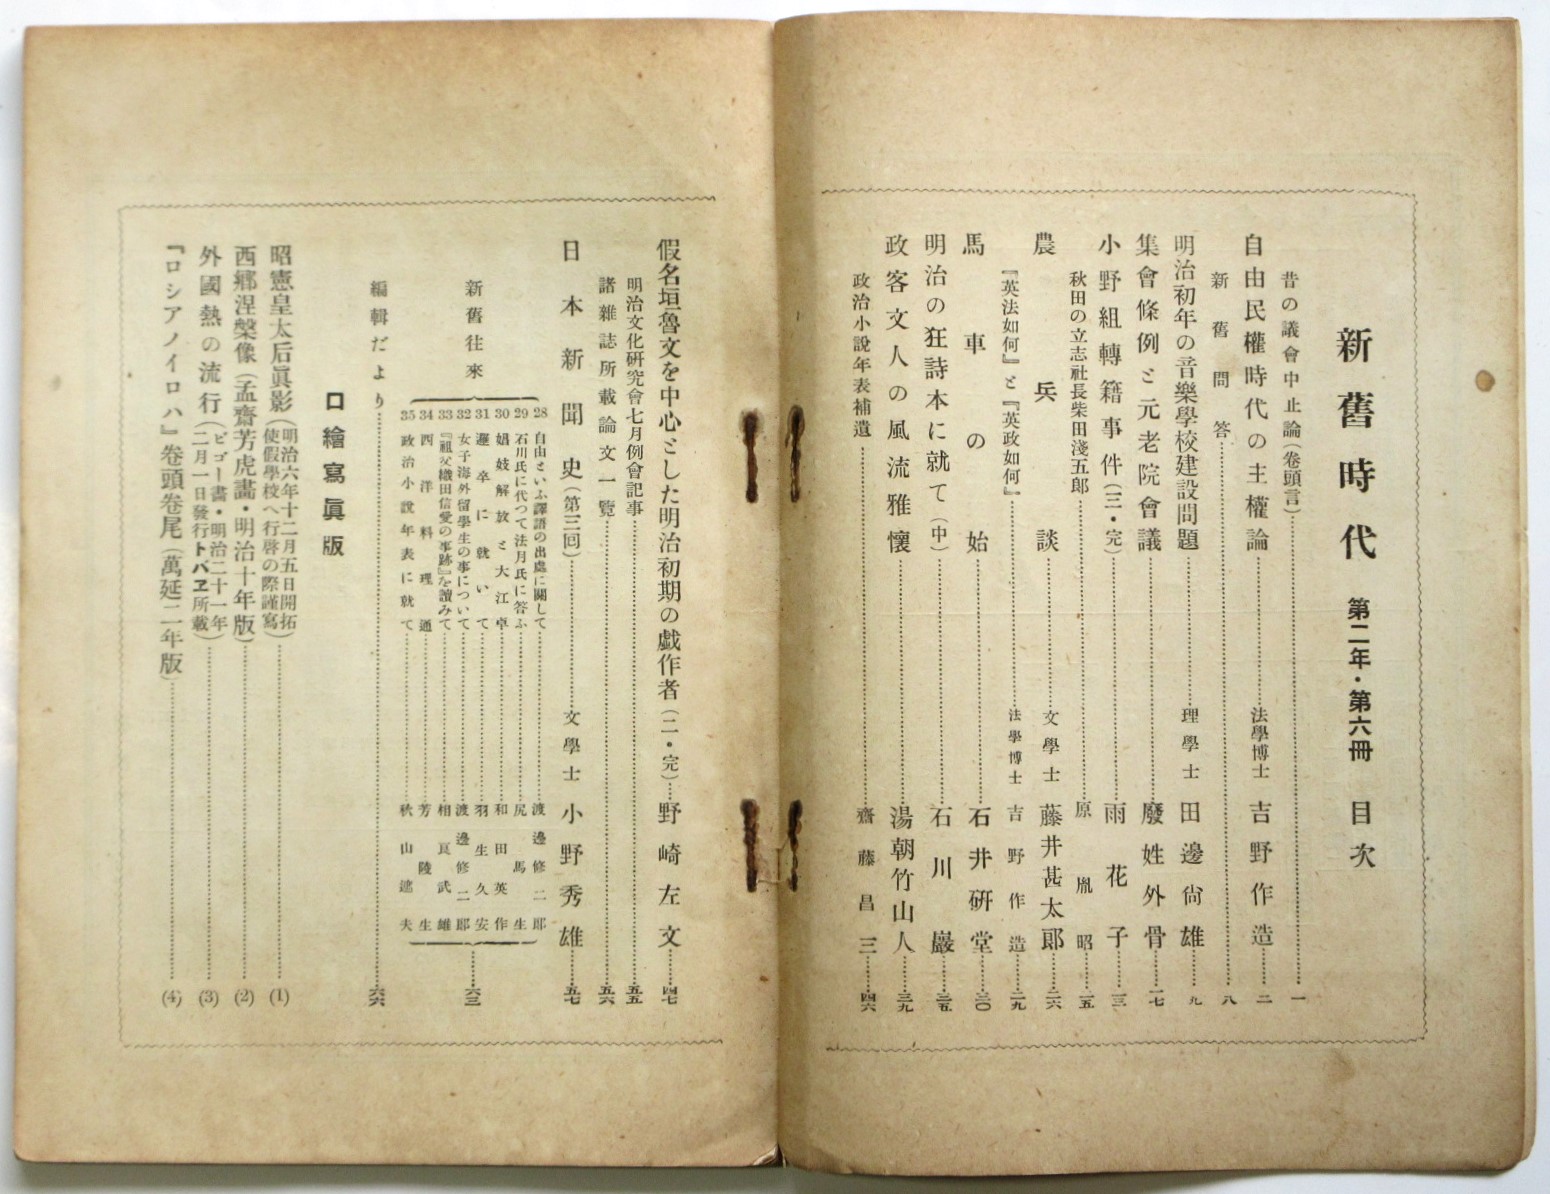 新舊時代 第二年・第六冊 目次
昔の議會中止論(卷頭言)…………一
自由民權時代の主權論…………法學博士 吉野作造……二
新舊問答…………八
明治初年の音樂學校建設問題…………理學士 田邊尙雄……九
集會條例と元老院會議…………廢姓外骨……一七
小野組轉籍事件(三・完)…………雨花子……一三
秋田の立志社長柴田淺五郎…………原胤昭……一五
農兵談…………文學士 藤井甚太郎……二六
『英法如何』と『英政如何』…………法學博士 吉野作造……二九
馬車の始…………石井硏堂……三〇
明治の狂詩本に就て(中)…………石川巖……三五
政客文人の風流雅懷…………湯朝竹山人……三九
政治小說年表補遺…………齋藤昌三……四六
假名垣魯文を中心とした明治初期の戯作者(二・完)……野崎左文……四七
明治文化硏究會七月例會記事…………五五
諸雜誌所載論文一覽…………五六
日本新聞史(第三回)…………文學士 小野秀雄……五七
新舊往來
28 自由といふ譯語の出處に關して…………渡邊修二郎
29 石川氏に代つて法月氏に答ふ…………尻馬生
30 娼妓解放と大江卓…………和田英作
31 邏卒に就いて…………羽生久安
32 女子海外留學生の事について…………渡邊修二郎
33 『祖父織田信愛の事跡』を讀みて…………相良武雄
34 西洋料理通…………芳陵生
35 政治小說年表に就て…………秋山逑夫
……六三
編輯だより…………六六
口繪寫眞版
昭憲皇太后眞影(明治六年十二月五日開拓使假學校へ行啓の際謹寫)…………(1)
西鄕涅槃像(孟齋芳虎畵・明治十年版)…………(2)
外國熱の流行(ビゴー畵・明治二十一年二月一日發行トバヱ所載)…………(3)
『ロシアノイロハ』卷頭卷尾(萬延二年版)…………(4)